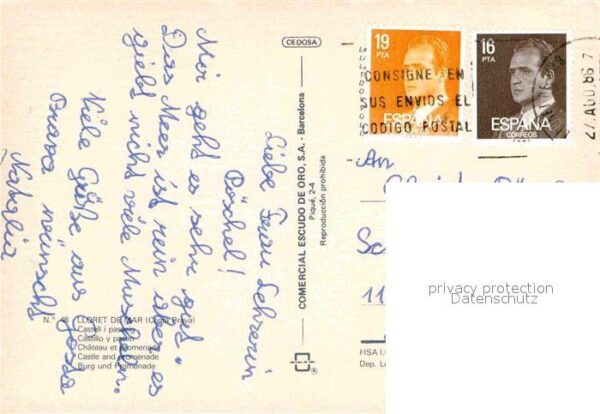 Liebe Frau Lehrerin
Püschel!
Mir geht es sehr gut.
Das Meer ist rein aber es
giebt nicht viele Muscheln.
Viele Grüße aus
wünscht
Natalia
N.° 48 - LLORET DE MAR (Costa Brava)
Castell i passeig
Castillo y paseo
Château et promenade
Castle and promenade
Burg und Promenade
CEDOSA
COMERCIAL ESCUDO DE ORO, S.A. - Barcelona
Piqué, 2-4
Reproducción prohibida
19
PTA
ESPAÑA
16
PTA
ESPAÑA
CORREOS
CONSIGNE EN
SUS ENVIOS EL
CODIGO POSTAL
27 AGO. 86
An
11
FISA I.
Dep. L
privacy protection
Datenschutz